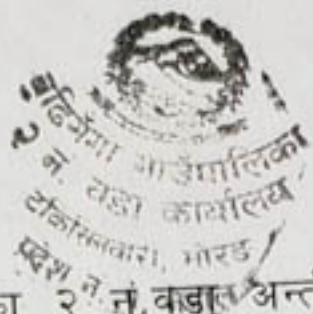 बुढिगंगा गाउँपालिका
२ नं. वडा कार्यालय
टंकीसिनवारी, मोरङ
प्रदेश नं.
२ नं. वडा अन्त